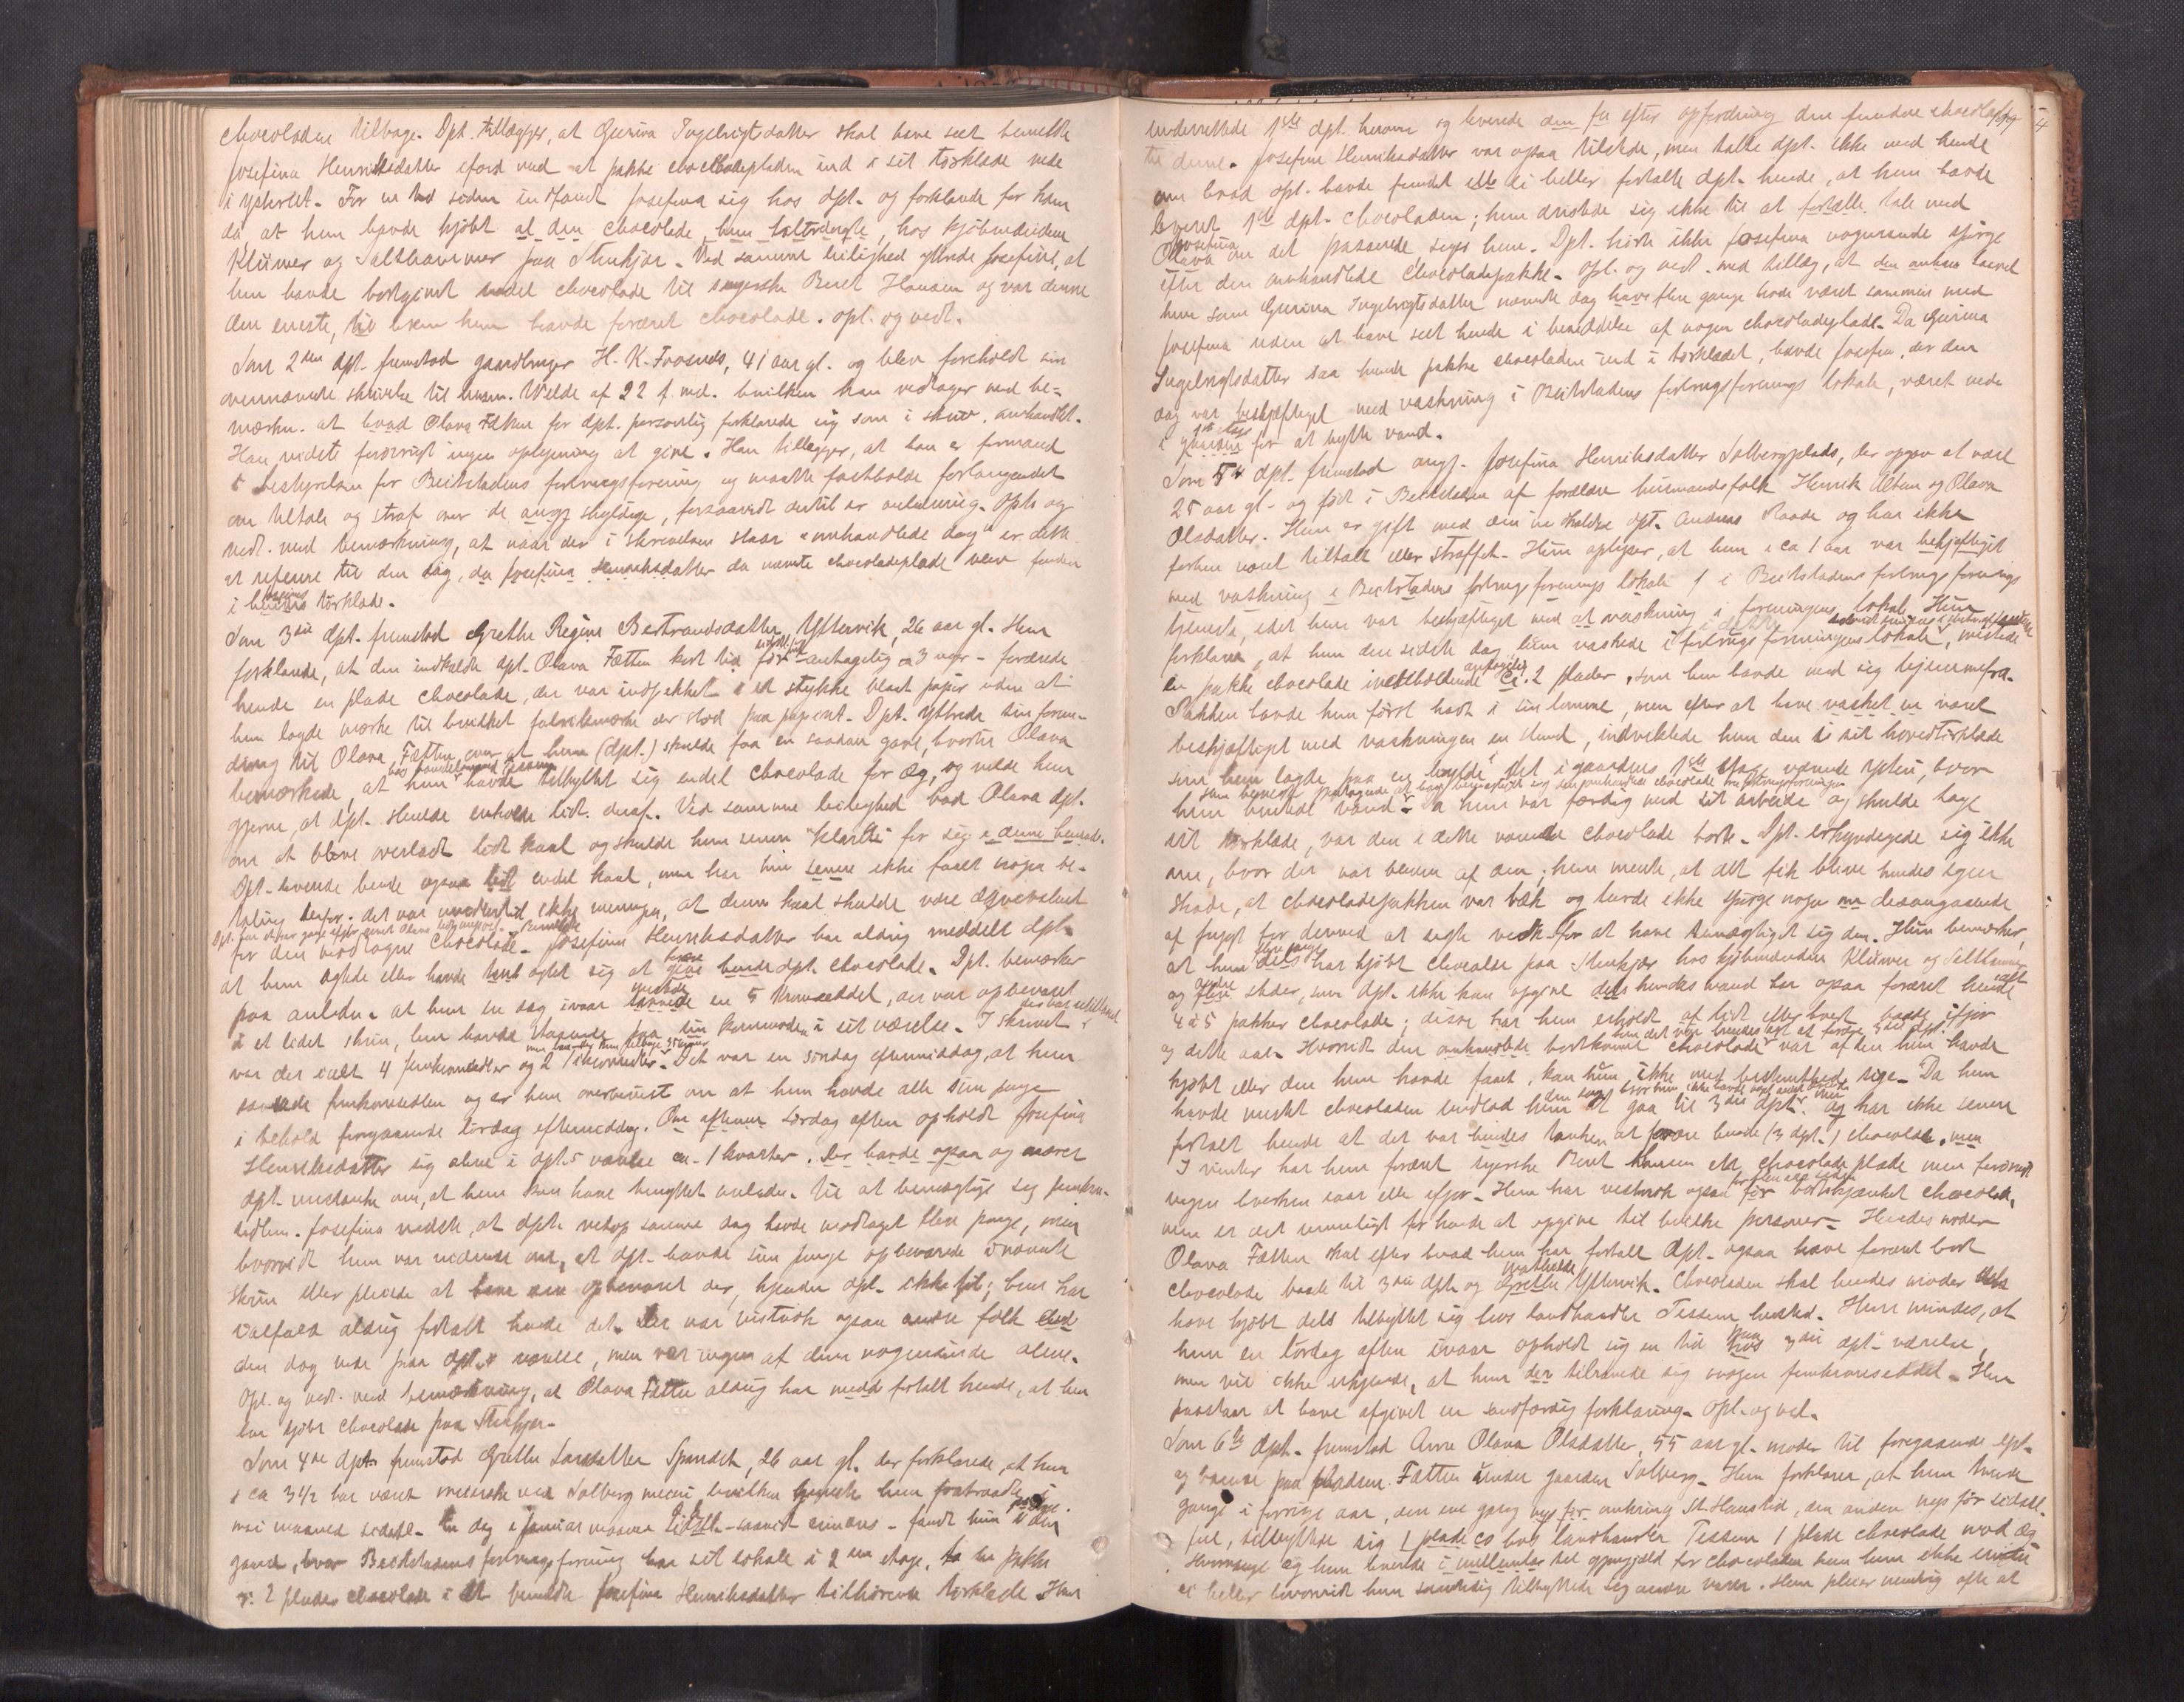 chocoladen tilbage. Dpt. tillægger, at Gurina Ingebrigtsdatter skal have seet bemeldte
Josefina Henriksdatter ifærd med at pakke chocoladepladen ind i sit tørklæde nede
i ysteriet. For en tid siden indfandt Josefina sig hos dpt. og forklarede for ham
da, at hun havde kjøbt al den chocolade, hun, hos kjøbmændene
Klüwer og Salthammer paa Stenkjær. Ved samme leilighed ytrede Josefina, at
hun havde bortgivet endel chocolade til syerske Beret Hansen og var denne
den eneste, til hvem hun havde foræret chocolade. Opl. og vedt.
Som 2den dpt. fremstod gaardbruger H. K. Foosnæs, 41 aar gl. og blev foreholdt sin
ovennævnte skrivelse til lensm. Welde af 22 f. md. hvilken han vedtager med be-
mærkn. at hvad Olava Fætten for dpt. personlig forklarede sig som i skriv. omhandlet.
Han vidste forøvrigt ingen oplysning at give. Han tillægger, at han er formand
i bestyrelsen for Beitstadens forbrugsforening og maatte fastholde forlangendet
om tiltale og straf over de angj. skyldige, forsaavidt dertil er anledning. Opl. og
vedt. med bemærkning, at naar der i skrivelsen staar "omhandlede dag" er dette
at referere til den dag, da Josefina Henriksdatter da nævnte chocoladeplade blev funden
i hendes tørklæde.
Som 3die dpt. fremstod Grethe Regine Bertrandsdatter Yttervik, 26 aar gl. Hun
forklarede, at den indkaldte dpt. Olava Fætten kort tid før sidstl. jul antagelig ca 3 uger - forærede
hende en plade chocolade, der var indpakket i et stykke blaat papir uden at
hun lagde mærke til hvilket fabrikmærke der stod paa papiret. Dpt. yttrede sin forun-
dring til Olava Fætten over at hun (dpt.) skulde faa en saadan gave, hvortil Olava
bemærkede, at hun hos handelsmand Tessem havde tilbyttet sig endel chocolade for æg, og vilde hun
gjerne, at dpt. skulde erholde lidt deraf. Ved samme leilighed bad Olava dpt.
om at blive overladt lidt kaal og skulde hun senere "klarere" for sig i denne henseende.
Dpt. leverede hende ogsaa lidt endel kaal, men har hun senere ikke faaet nogen be-
taling derfor. Det var imidlertid ikke meningen, at denne kaal skulde være æquivalent
for den modtagne chocolade. Josefina Henriksdatter har aldrig meddelt dpt.
at hun agtede eller havde tænkt sig at forære hende dpt. chocolade. Dpt. bemærker
paa anledn. at hun en dag ivaar mistede en 5 kroneseddel, der var opbevaret
i et lidet skrin, hun havde staaende paa sin kommode i sit værelse. I skrinet
var der ialt 4 femkronesedler og 2 tikronesedler. Det var en søndag eftermiddag, at hun
savnede femkronesedlen og er hun overbevist om at hun havde alle sine penge
i behold foregaaende lørdag eftermiddag. Om aftenen Lørdag aften opholdt Josefina
Henriksdatter sig alene i dpt.s værelse ca. 1 kvarter. Der havde ogsaa og nærer
dpt. mistanke om, at hun kan have benyttet anledn. til at bemægtige sig femkrone-
sedlen. Josefina vidste, at dpt. netop samme dag havde modtaget flere penge, men
hvorvidt hun var vidende om, at dpt. havde sine penge opbevarede i nævnte
skrin eller pleiede at have dem opbevaret der, kjender dpt. ikke til; hun har
ialfald aldrig fortalt hende det. Der var vistnok ogsaa andre folk end
den dag inde paa dpt.s værelse, men var ingen af dem nogensinde alene.
Opl. og vedt. med bemærkning, at Olava Fætten aldrig har fortalt hende, at hun
har kjøbt chocolade paa Stenkjær.
Som 4de dpt. fremstod Grethe Larsdatter Spandet, 26 aar gl. der forklarede, at hun
i ca 3 1/2 har været meierske ved Solberg meieri hvilken hun fratraadte i
mai maaned sidstl. En dag i Januar maaned sidstl. - saavidt erindres - fandt hun i den
gaard, hvor Beitstadens forbrugsforening har sit lokale i 2den etage, en pakke
ɔ: 2 plader chocolade i et bemeldte Josefine Henriksdatter tilhørende tørklæde. Hun
underrettede 1ste dpt. herom og leverede den fra efter opfordring den fundne chocolade
til denne. Josefine Henriksdatter var ogsaa tilstede, men talte dpt. ikke med hende
om hvad dpt. havde fundet eller ei heller fortalte dpt. hende, at hun havde
leveret 1ste dpt. chocoladen; hun dristede sig ikke til at fortælle tale med
Josefina om det passerede, siger hun. Dpt. hørte ikke Josefina nogensinde spørge
efter den omhandlede chocoladepakke. Opl. og vedt. med tillæg, at den anden
hun som Gurina Ingebrigtsdatter nævnte dag flere gange havde været sammen med
Josefina uden at have seet hende i besiddelse af nogen chocoladeplade. Da Gurina
Ingebrigtsdatter saa hende pakke chocoladen ind i tørklædet, havde Josefina, der den
dag var beskjæftiget med vaskning i Beitstadens forbrugsforenings lokale, været nede
i 1ste etage for at hente vand.
Som 5te dpt. fremstod angj. Josefina Henriksdatter Solbergplads, der opgav at være
25 aar gl. og født i Beitstaden af forældre husmandsfolk Henrik Olsen og Olava
Olsdatter. Hun er gift med den indkaldte dpt. Andreas Raade og har ikke
forhen været tiltalt eller straffet. Hun oplyser, at hun i ca 1 aar var beskjæftiget
med vaskning i Beitstadens forbrugsforenings lokale i Beitstadens forbrugsforenings
tjeneste, idet hun var beskjæftiget med at vaskning i foreningens lokale. Hun
forklarer, at hun den sidste dag, hun vaskede i forbrugsforeningens lokale, mistede
en pakke chocolade indeholdende antagelig 2 plader, som hun havde med sig hjemmefra.
Pakken havde hun først havt i sin lomme, men efter at have vasket en været
beskjæftiget med vaskningen en stund, indviklede hun den i sit hovedtørklæde
som hun lagde paa en hylde det i gaardens 1ste etage værende ysteri, hvor
hun hentede vand. Da hun var færdig med sit arbeide og skulde tage
sit tørklæde, var den i dette værende chocolade borte. Dpt. erkyndigede sig ikke
om, hvor der var bleven af den; hun mente, at det fik blive hendes egen
skade, at chocoladepakken var væk og turde ikke spørge nogen om desangaaende
af frygt for derved at sigte vedk. for at have tilvendt sig den. Hun bemærker,
at hun flere gange har kjøbt chocolade paa Stenkjær hos kjøbmændene Klüwer og Salthammer
og andre steder, som dpt. ikke kan opgive; hendes mand har ogsaa foræret hende
4 à 5 pakker chocolade; disse har hun erholdt af lidt efter hvert baade ifjor
og dette aar. Hvorvidt den omhandlede bortkomne chocolade var af den hun havde
kjøbt eller den hun havde faaet, kan hun ikke med bestemthed sige. Da hun
havde mistet chocoladen undlod hun at gaa til 3die dpt. og har ikke senere
fortalt hende at det var hendes tanke at forære hende (3 dpt.) chocolade, men
I vinter har hun foræret syerske Beret Hansen en chocoladeplade men forøvrigt
ingen hverken iaar eller ifjor. Hun har vistnok ogsaa før bortskjænket chocolade,
men er det umuligt for hende at opgive til hvilke personer. Hendes moder
Olava Fætten skal efter hvad hun har fortalt dpt. ogsaa have foræret bort
chocolade baade til 3die dpt. og Grethe Yttervik. Chocoladen skal hendes moder dels
have kjøbt dels tilbyttet sig hos landhandler Tessem. Hun mindes, at
hun en lørdag aften ivaar opholdt sig en tid paa 3die dpt. værelse,
men vil ikke erkjende, at hun der tilvendte sig nogen femkroneseddel. Hun
paastaar at have afgivet en sandfærdig forklaring. Opl. og vedt.
Som 6te dpt. fremstod Anne Olava Olsdatter, 55 aar gl. moder til foregaaende dpt.
og boende paa pladsen Fætten under gaarden Solberg. Hun forklarer, at hun tvende
gange i forrige aar, den ene gang omkring St. Hanstid, den anden noget før sidstl.
jul, tilbyttede sig 1 plade hos landhandler Tessem 1 plade chocolade mod æg.
Hvormange æg hun leverede i til gjengjæld for chocoladen kan hun ikke erindre
ei heller hvorvidt hun samtidig tilbyttede sig andre varer. Hun pleier nemlig ofte at